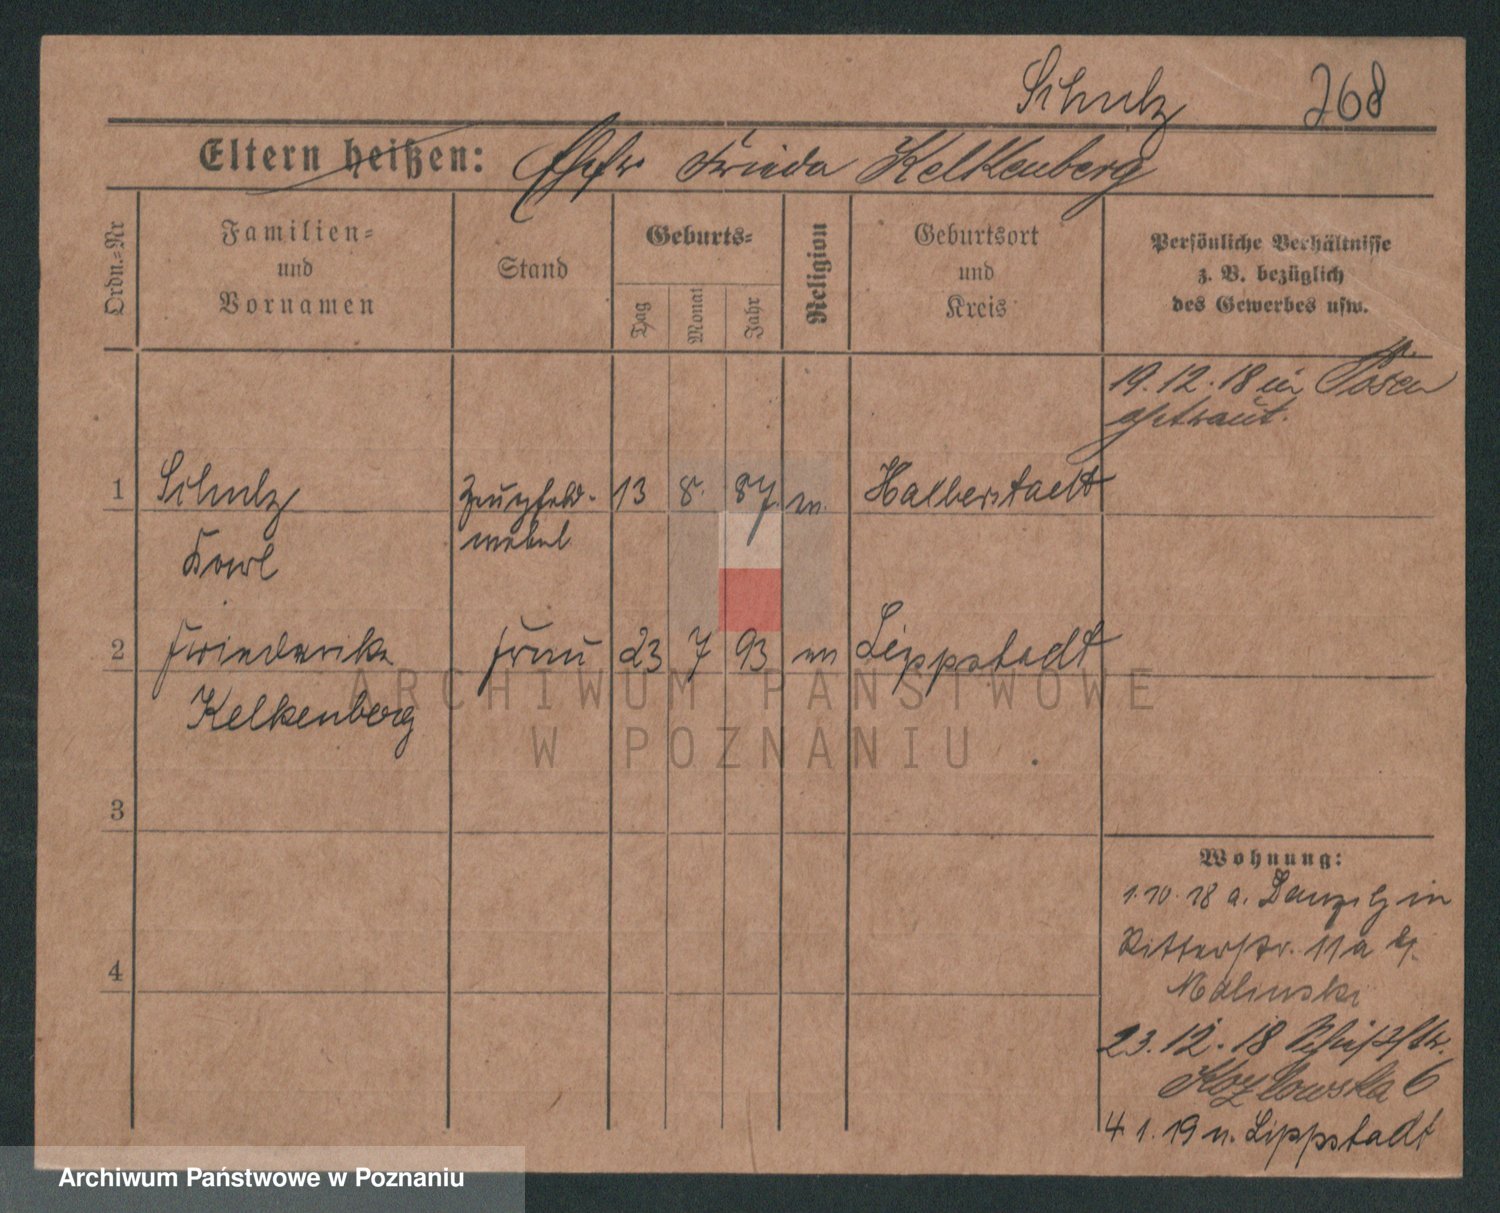 Schulz 268
Eltern heißen: Ehefr Frieda Kelkenberg
Ordn.=Nr
Familien=
und
Vornamen
Stand
Geburts=
Tag
Monat
Jahr
Religion
Geburtsort
und
Kreis
Persönliche Verhältnisse
z. B. bezüglich
des Gewerbes usw.
19.12.18 in Posen
getraut.
1 Schulz Zeugfeld- 13 8. 87 Halberstadt
webel
Karl
2 Friederike Frau 23 7 93 Lippstadt
Kelkenberg
3
4
Wohnung:
1.10.18 a. Danzig in
Ritterstr. 11a b.
Malinski
23.12.18 Schießstr.
Kozlowska 6
4 1.19 n. Lippstadt
ARCHIWUM PAŃSTWOWE
W POZNANIU .
Archiwum Państwowe w Poznaniu